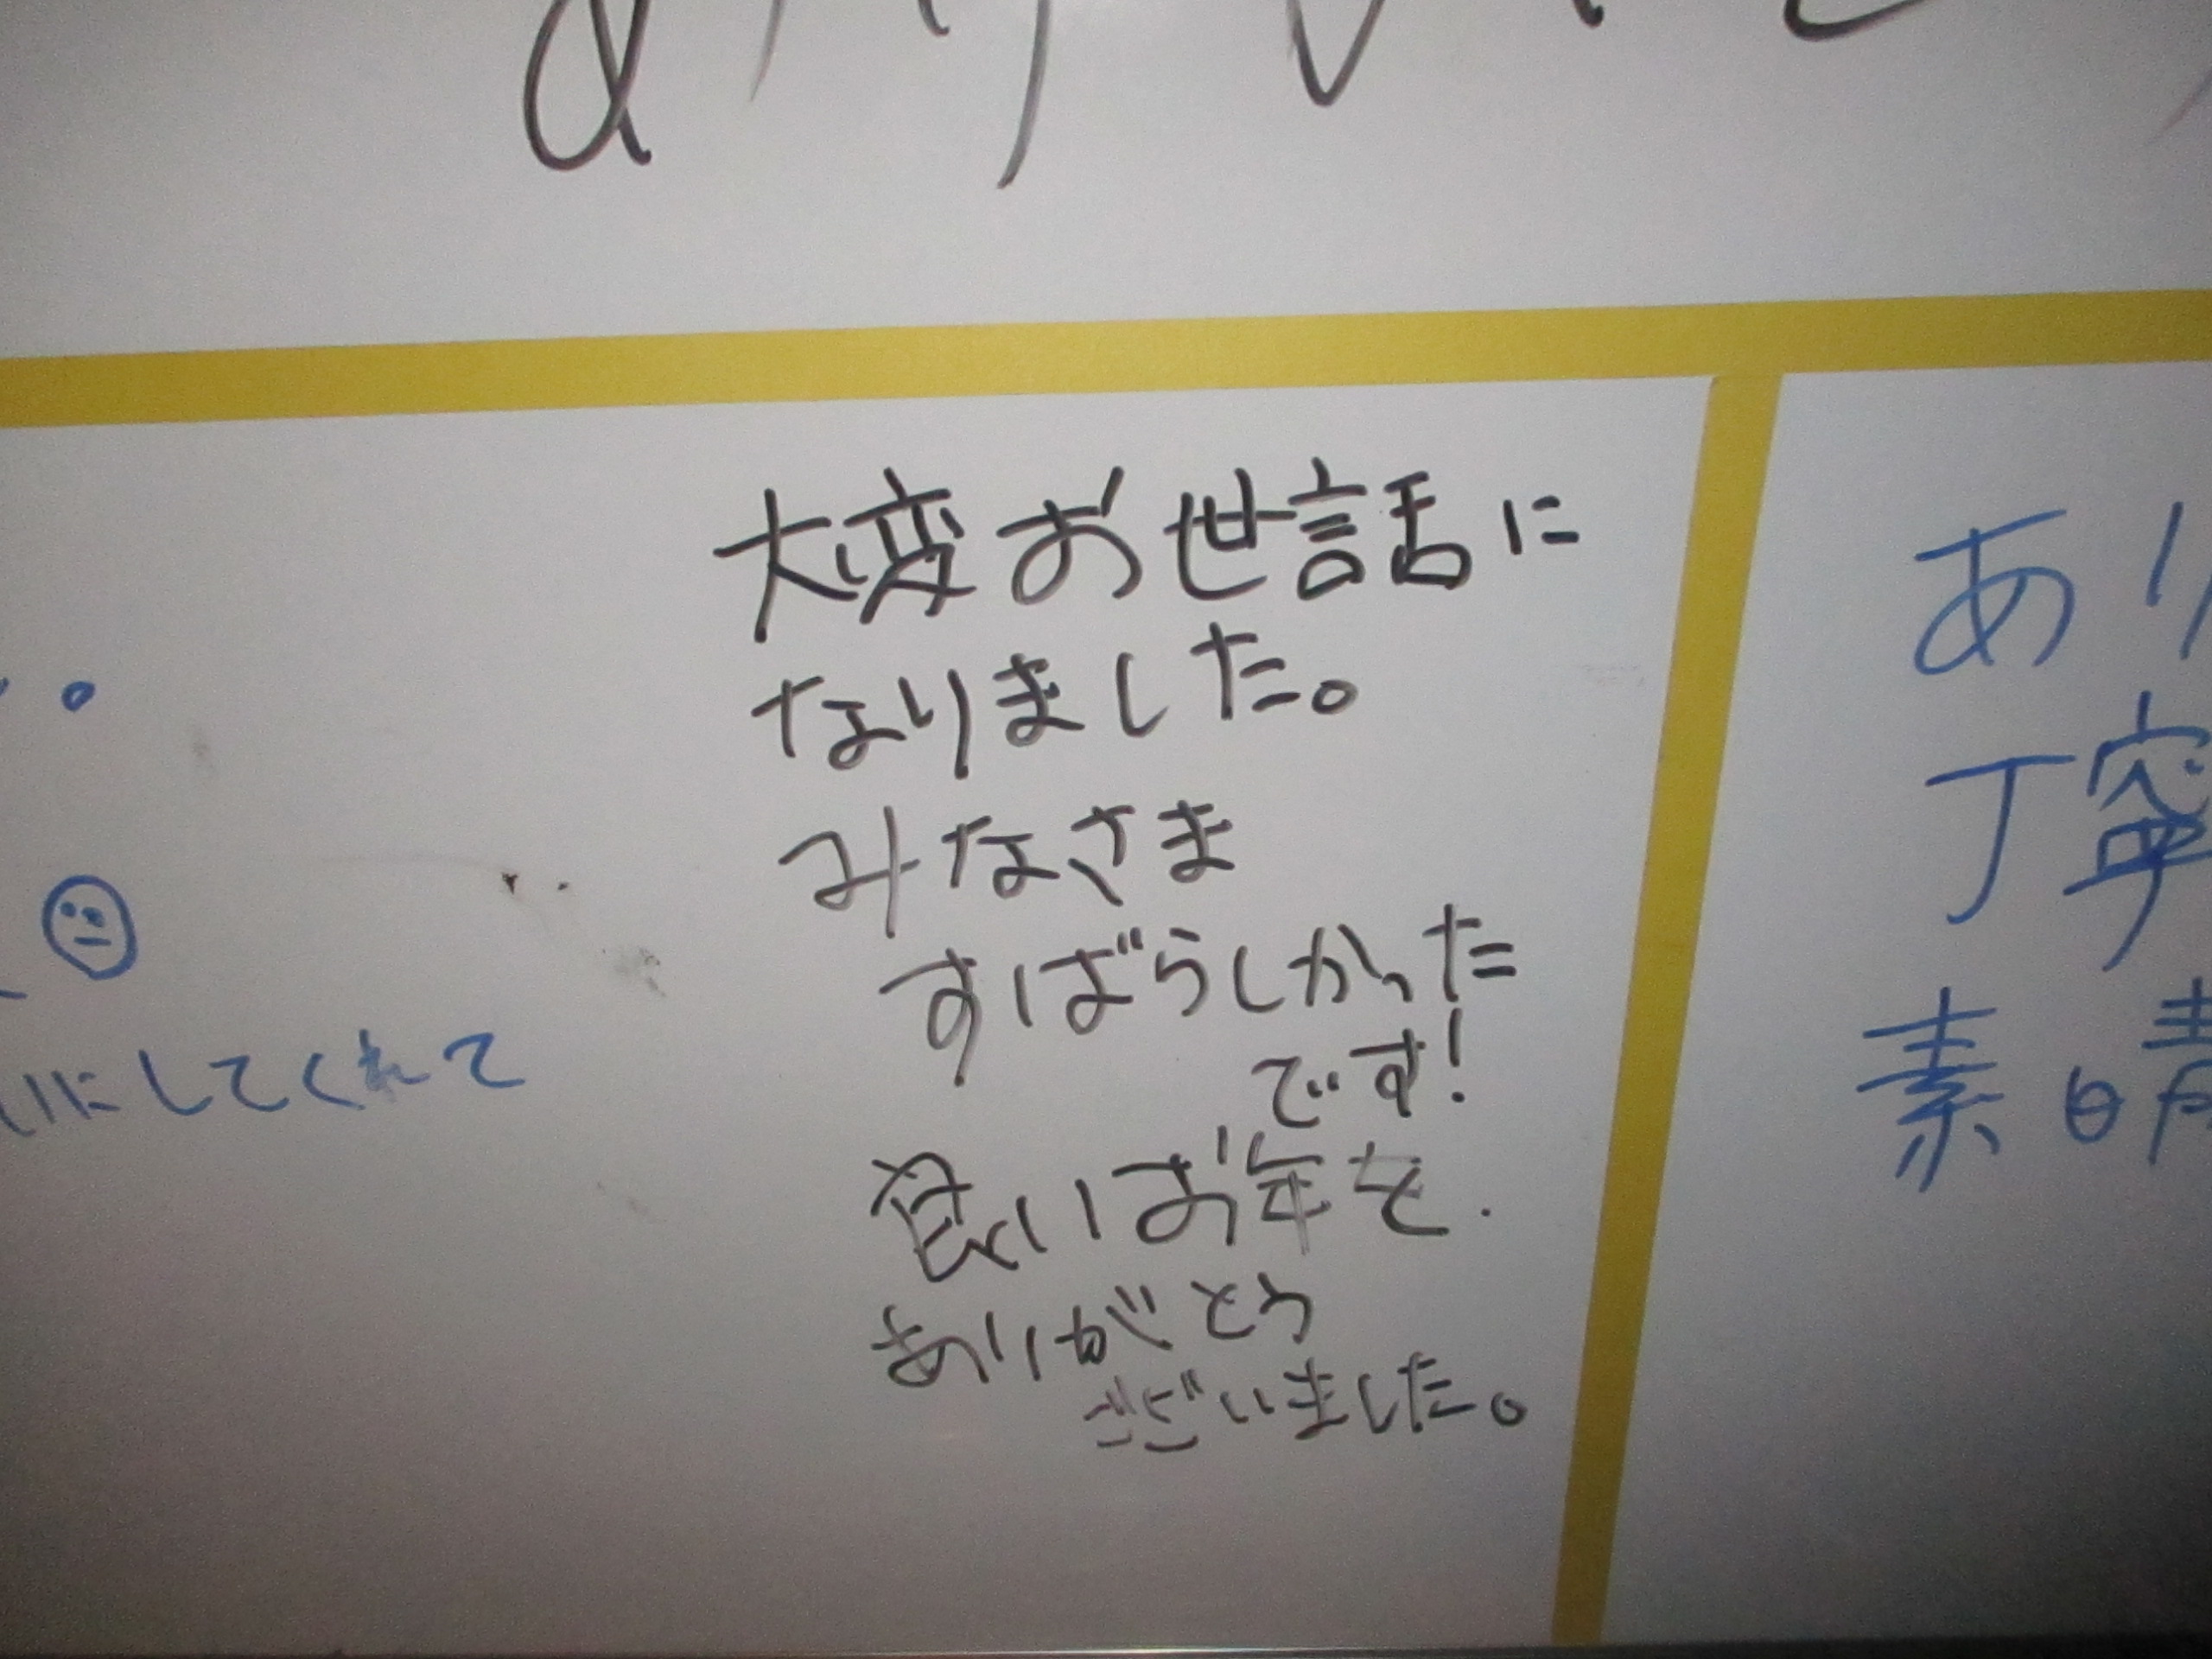 大変お世話に
なりました。
みなさま
すばらしかった
です!
良いお年を.
ありがとう
ございました。
にしてくれて
あり
丁寧
素晴